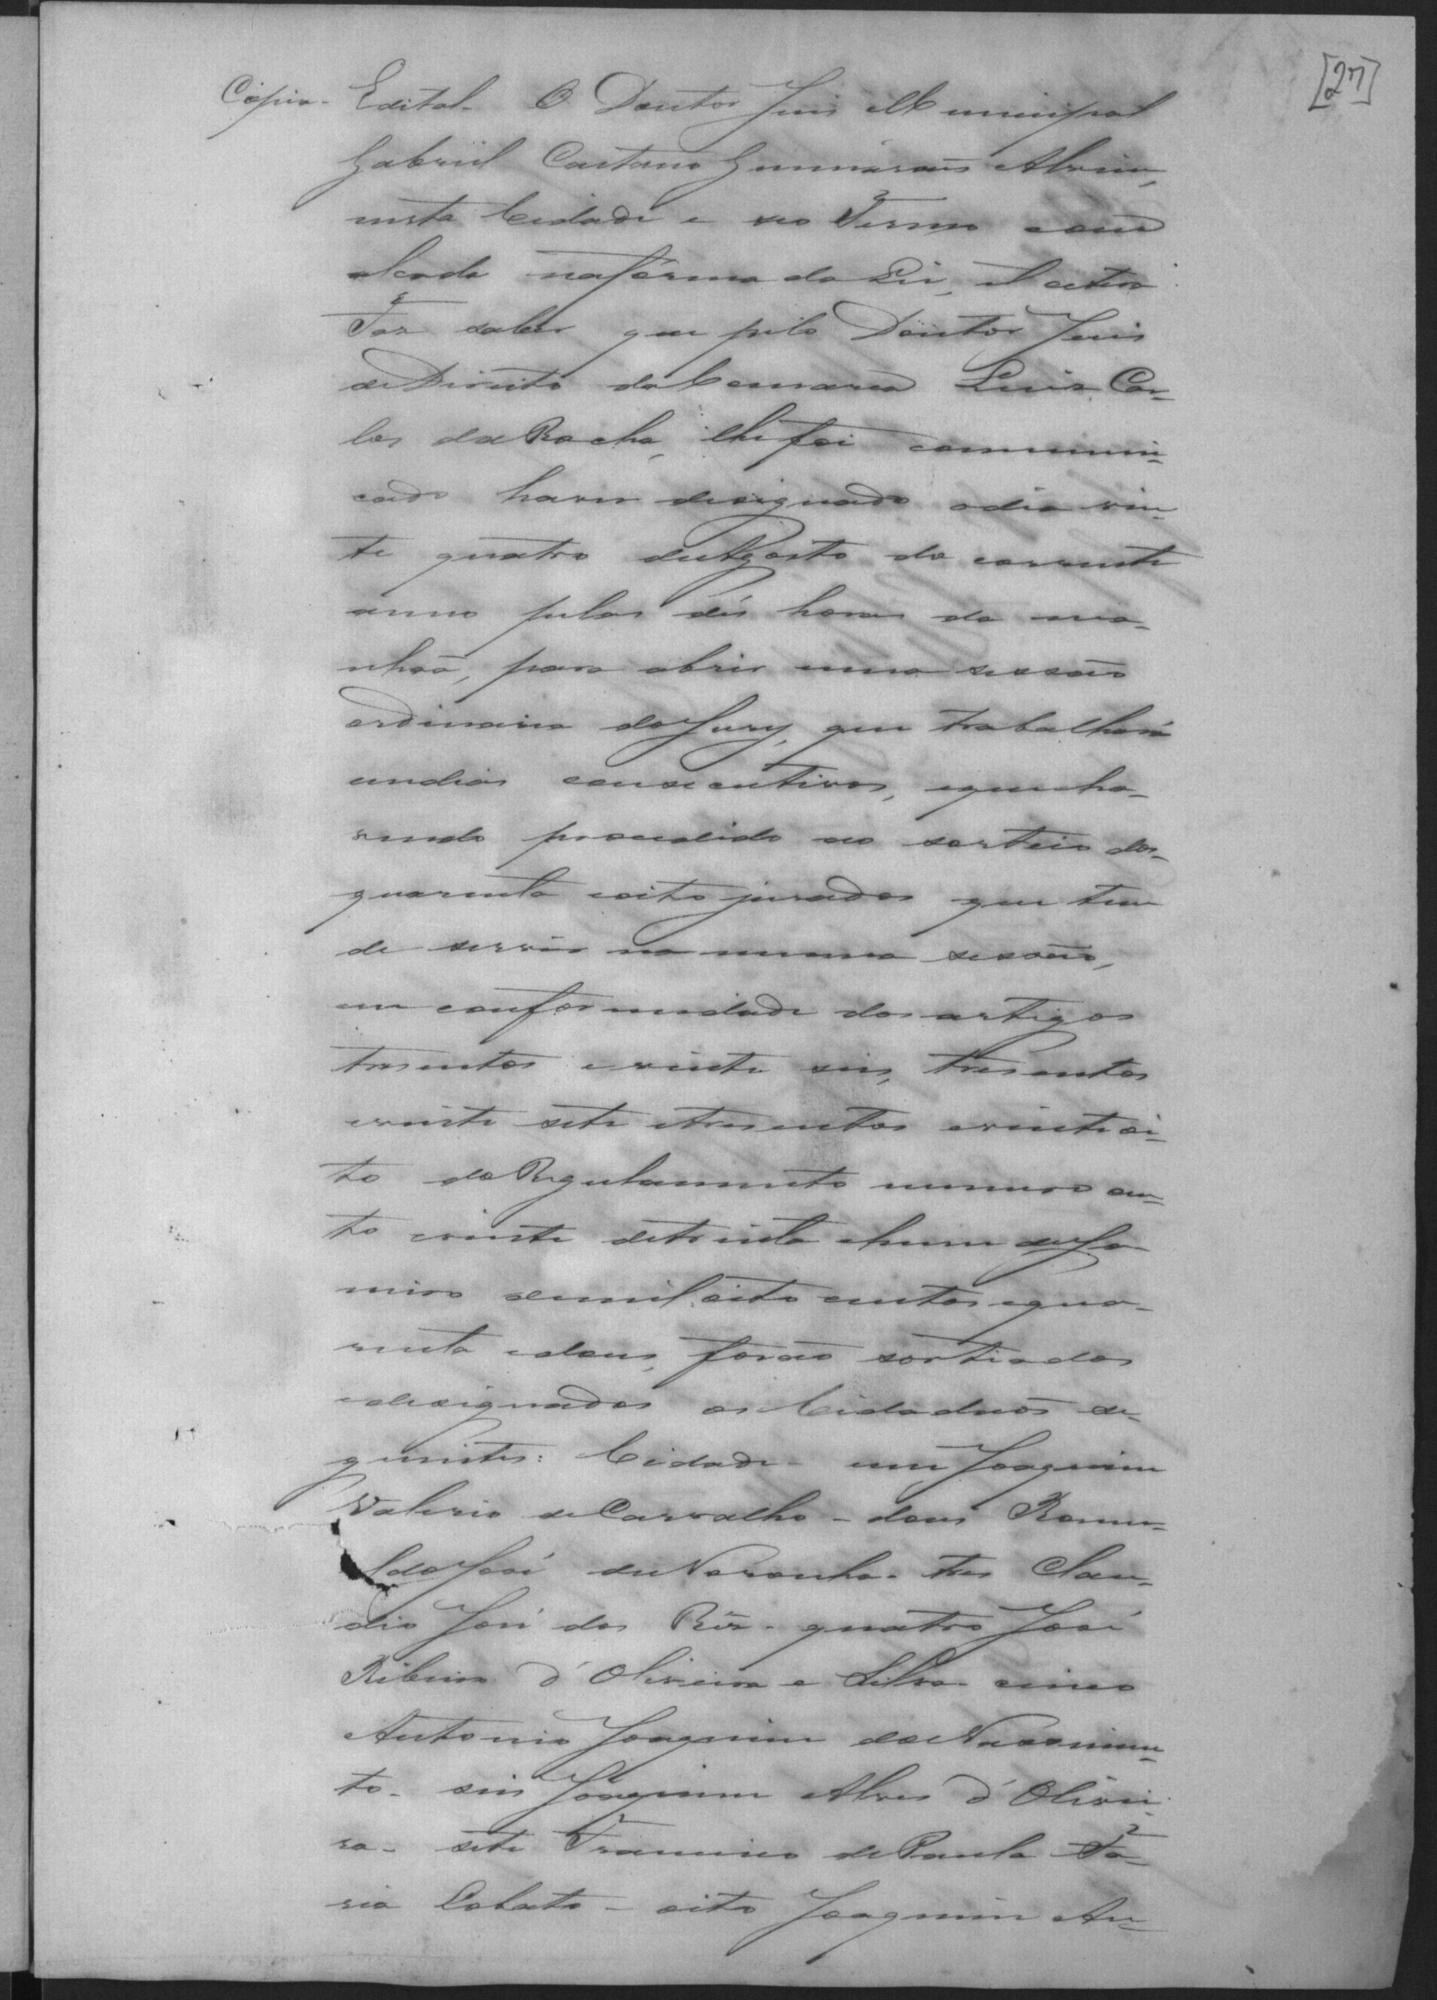 [27]
Cópia - Edital - O Doutor Juis Municipal
Gabriel Caetano Guimarães Alvim,
nesta Cidade e seo Termo com
alçada na fórma da Lei, et cetera
Faz saber que pelo Doutor Juis
de Direito da Comarca Luiz Car-
los da Rocha, lhe foi communi-
cado haver designado o dia vin-
te quatro de Agosto do corrente
anno pelas dés horas da ma-
nhãa, para abrir uma sessão
ordinaria do Jury, que trabalhará
em dias consecutivos, e que ha-
vendo procedido ao sorteio dos
quarenta e oito jurados que tem
de servir na mesma sessão,
em conformidade dos artigos
tresentos e vinte seis, tresentos
e vinte sete e tresentos e vinte oi-
to do Regulamento numero cen-
to e vinte de trinta e hum de Ja-
neiro de mil oito centos e qua-
renta e dous, forão sortiados
e designados os Cidadãos se-
guintes: Cidade - um Joaquim
Valerio de Carvalho - dous Romu-
aldo José de Noronha - tres Clau-
dio José dos Reis - quatro José
Ribeiro d'Oliveira e Silva - cinco
Antonio Joaquim do Nascimen-
to - seis Joaquim Alves d'Olivei-
ra - sete Francisco de Paula Fa-
ria Lobato - oito Joaquim An-